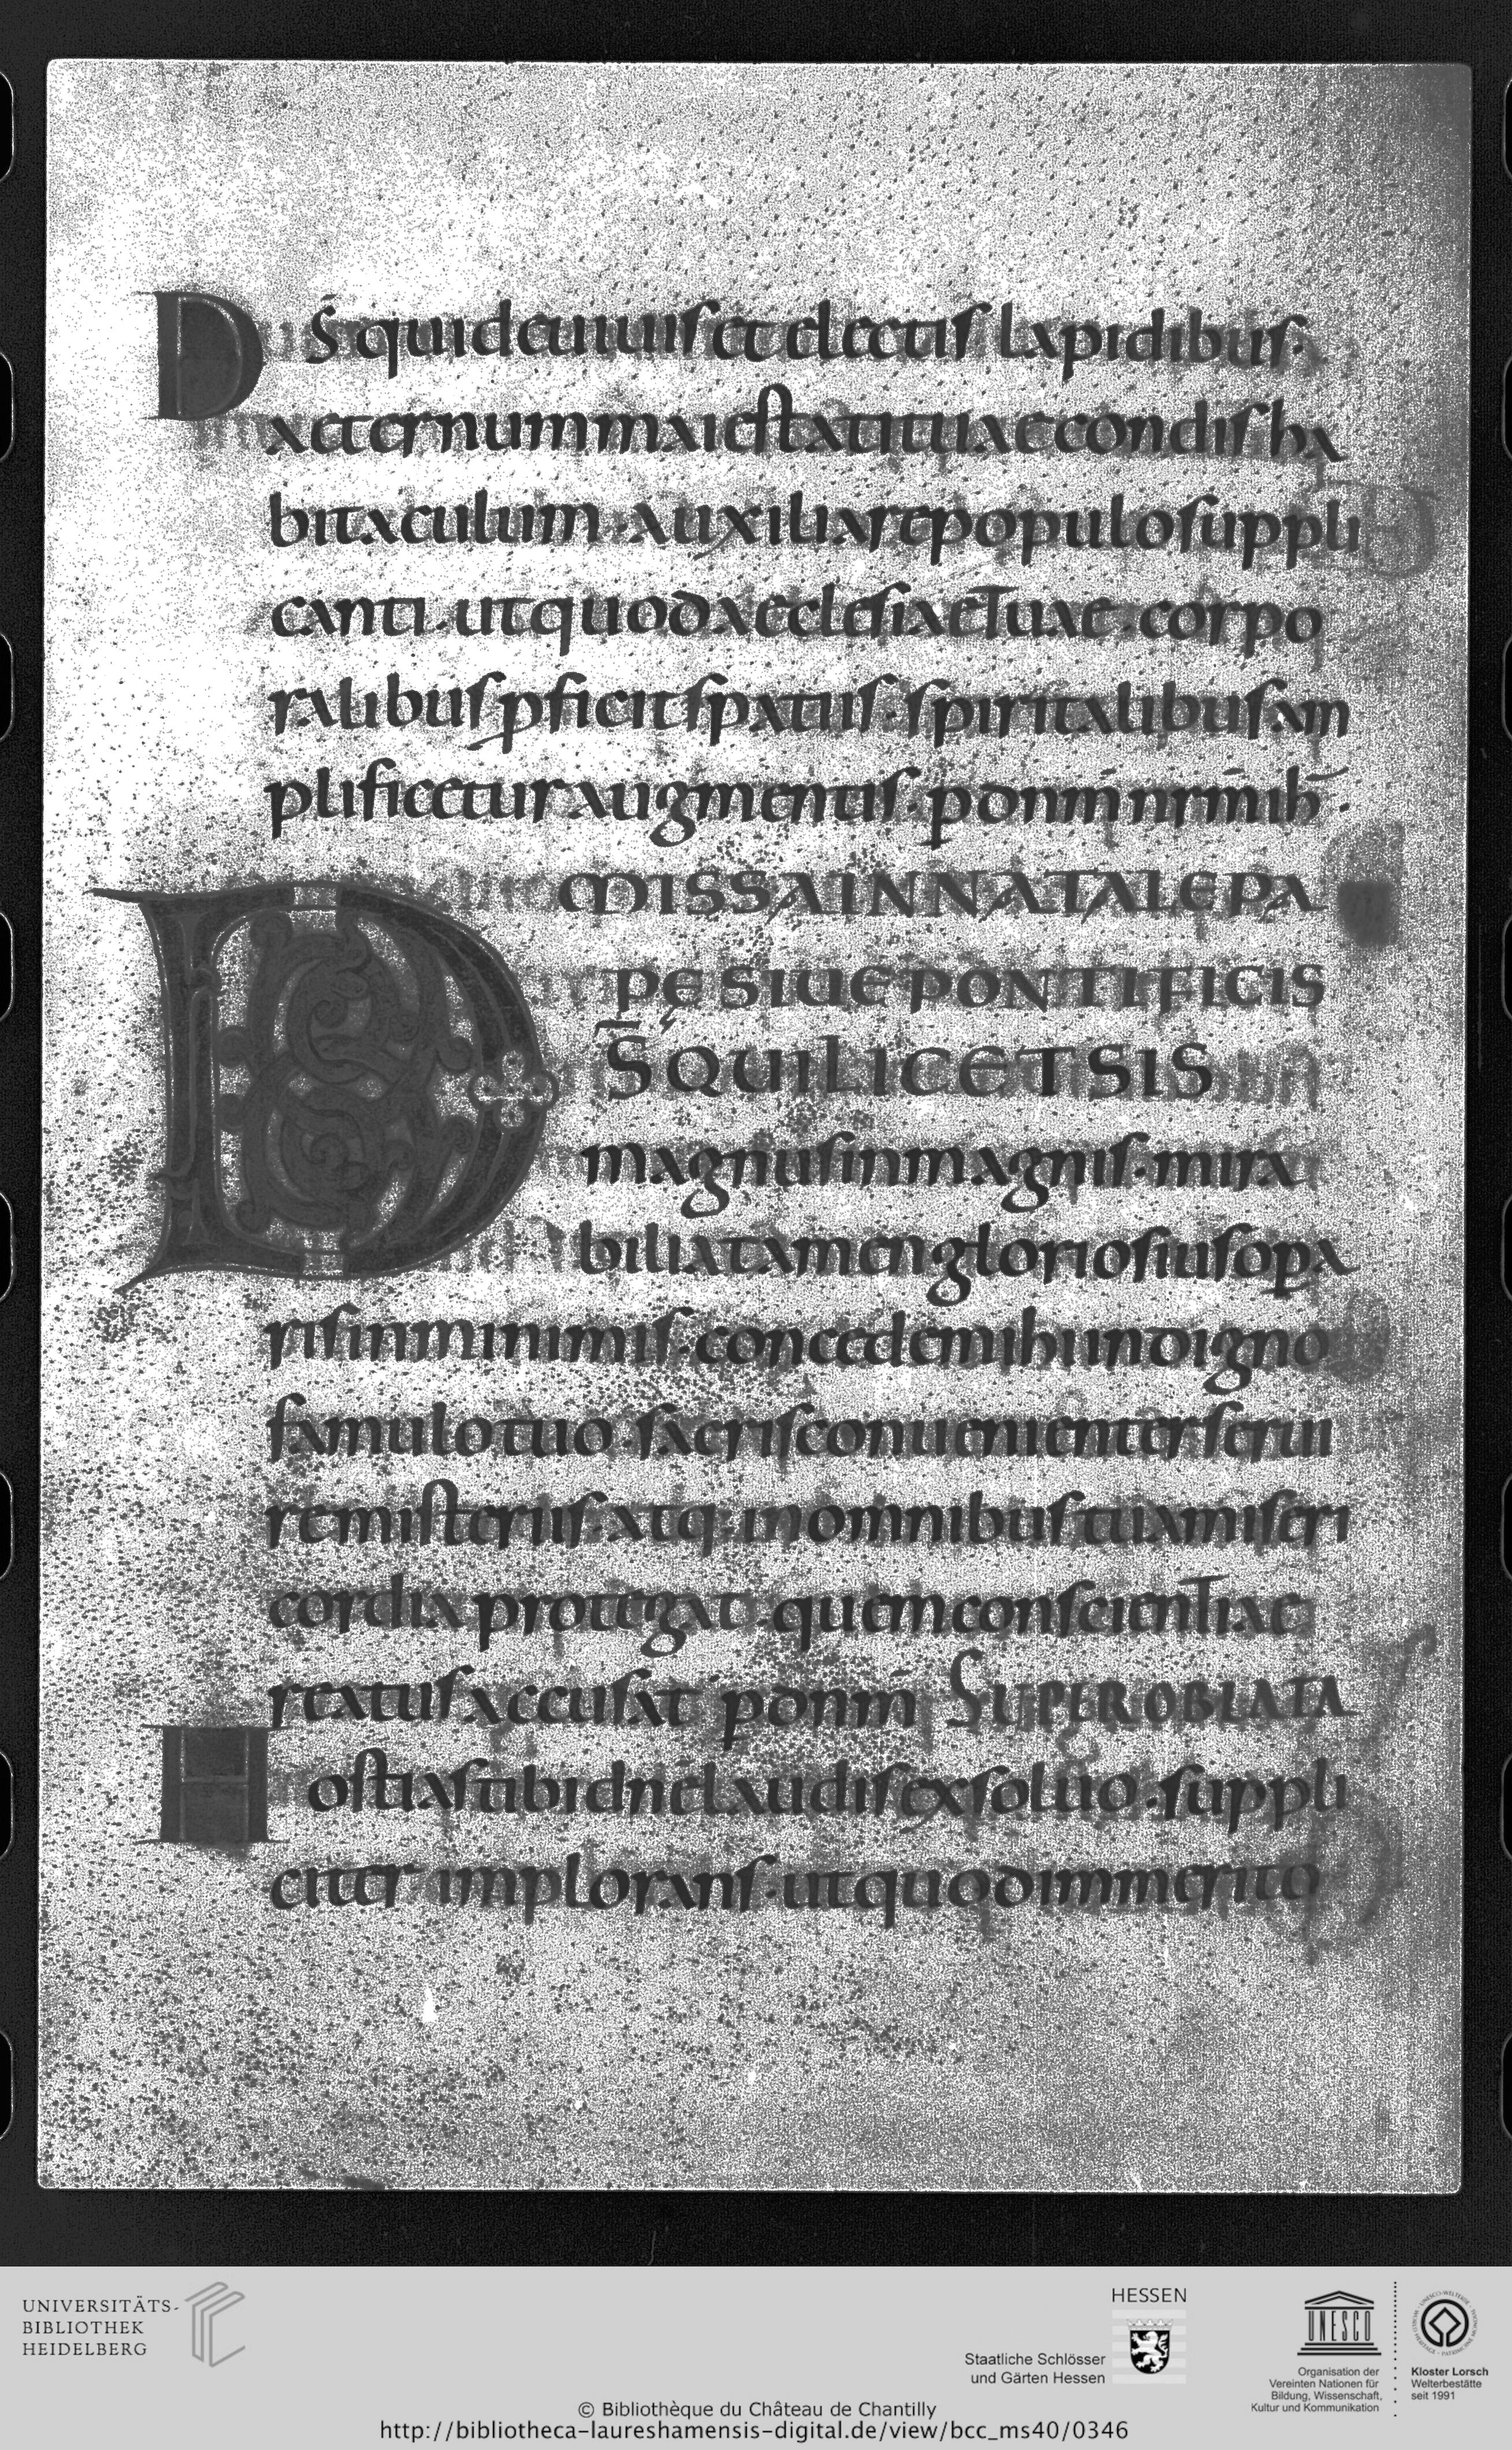 DS̄ qui de uiuis et electis lapidibus·
aeternum maiestati tuae condis ha
bitaculum· auxiliare populo suppli
canti· ut quod aeclesiae tuae· corpo
ralibus ꝓficit spatiis· spiritalibus am
plificetur augmentis· p dnm̄ nrm̄ ih̄·
MISSA IN NATALE PA
PĘ SIUE PONTIFICIS
DS̄ QUI LICET SIS
magnus in magnis· mira
bilia tamen gloriosius opa
ris in minimis· concede mihi indigno
famulo tuo· sacris conuenienter serui
re misteriis· atq: in omnibus tua miseri
cordia protegat· quem conscientiae
reatus accusat p dnm̄ SUPER OBLATA
Hostias tibi dnē laudis exsoluo· suppli
citer implorans· ut quod immerito
UNIVERSITÄTS-
BIBLIOTHEK
HEIDELBERG
HESSEN
Staatliche Schlösser
und Gärten Hessen
UNESCO
Organisation der
Vereinten Nationen für
Bildung, Wissenschaft,
Kultur und Kommunikation
Kloster Lorsch
Welterbestätte
seit 1991
© Bibliothèque du Château de Chantilly
http://bibliotheca-laureshamensis-digital.de/view/bcc_ms40/0346